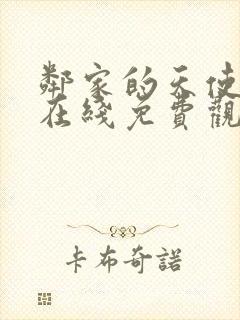 鄰家的天使
在綫免費觀
卡布奇諾